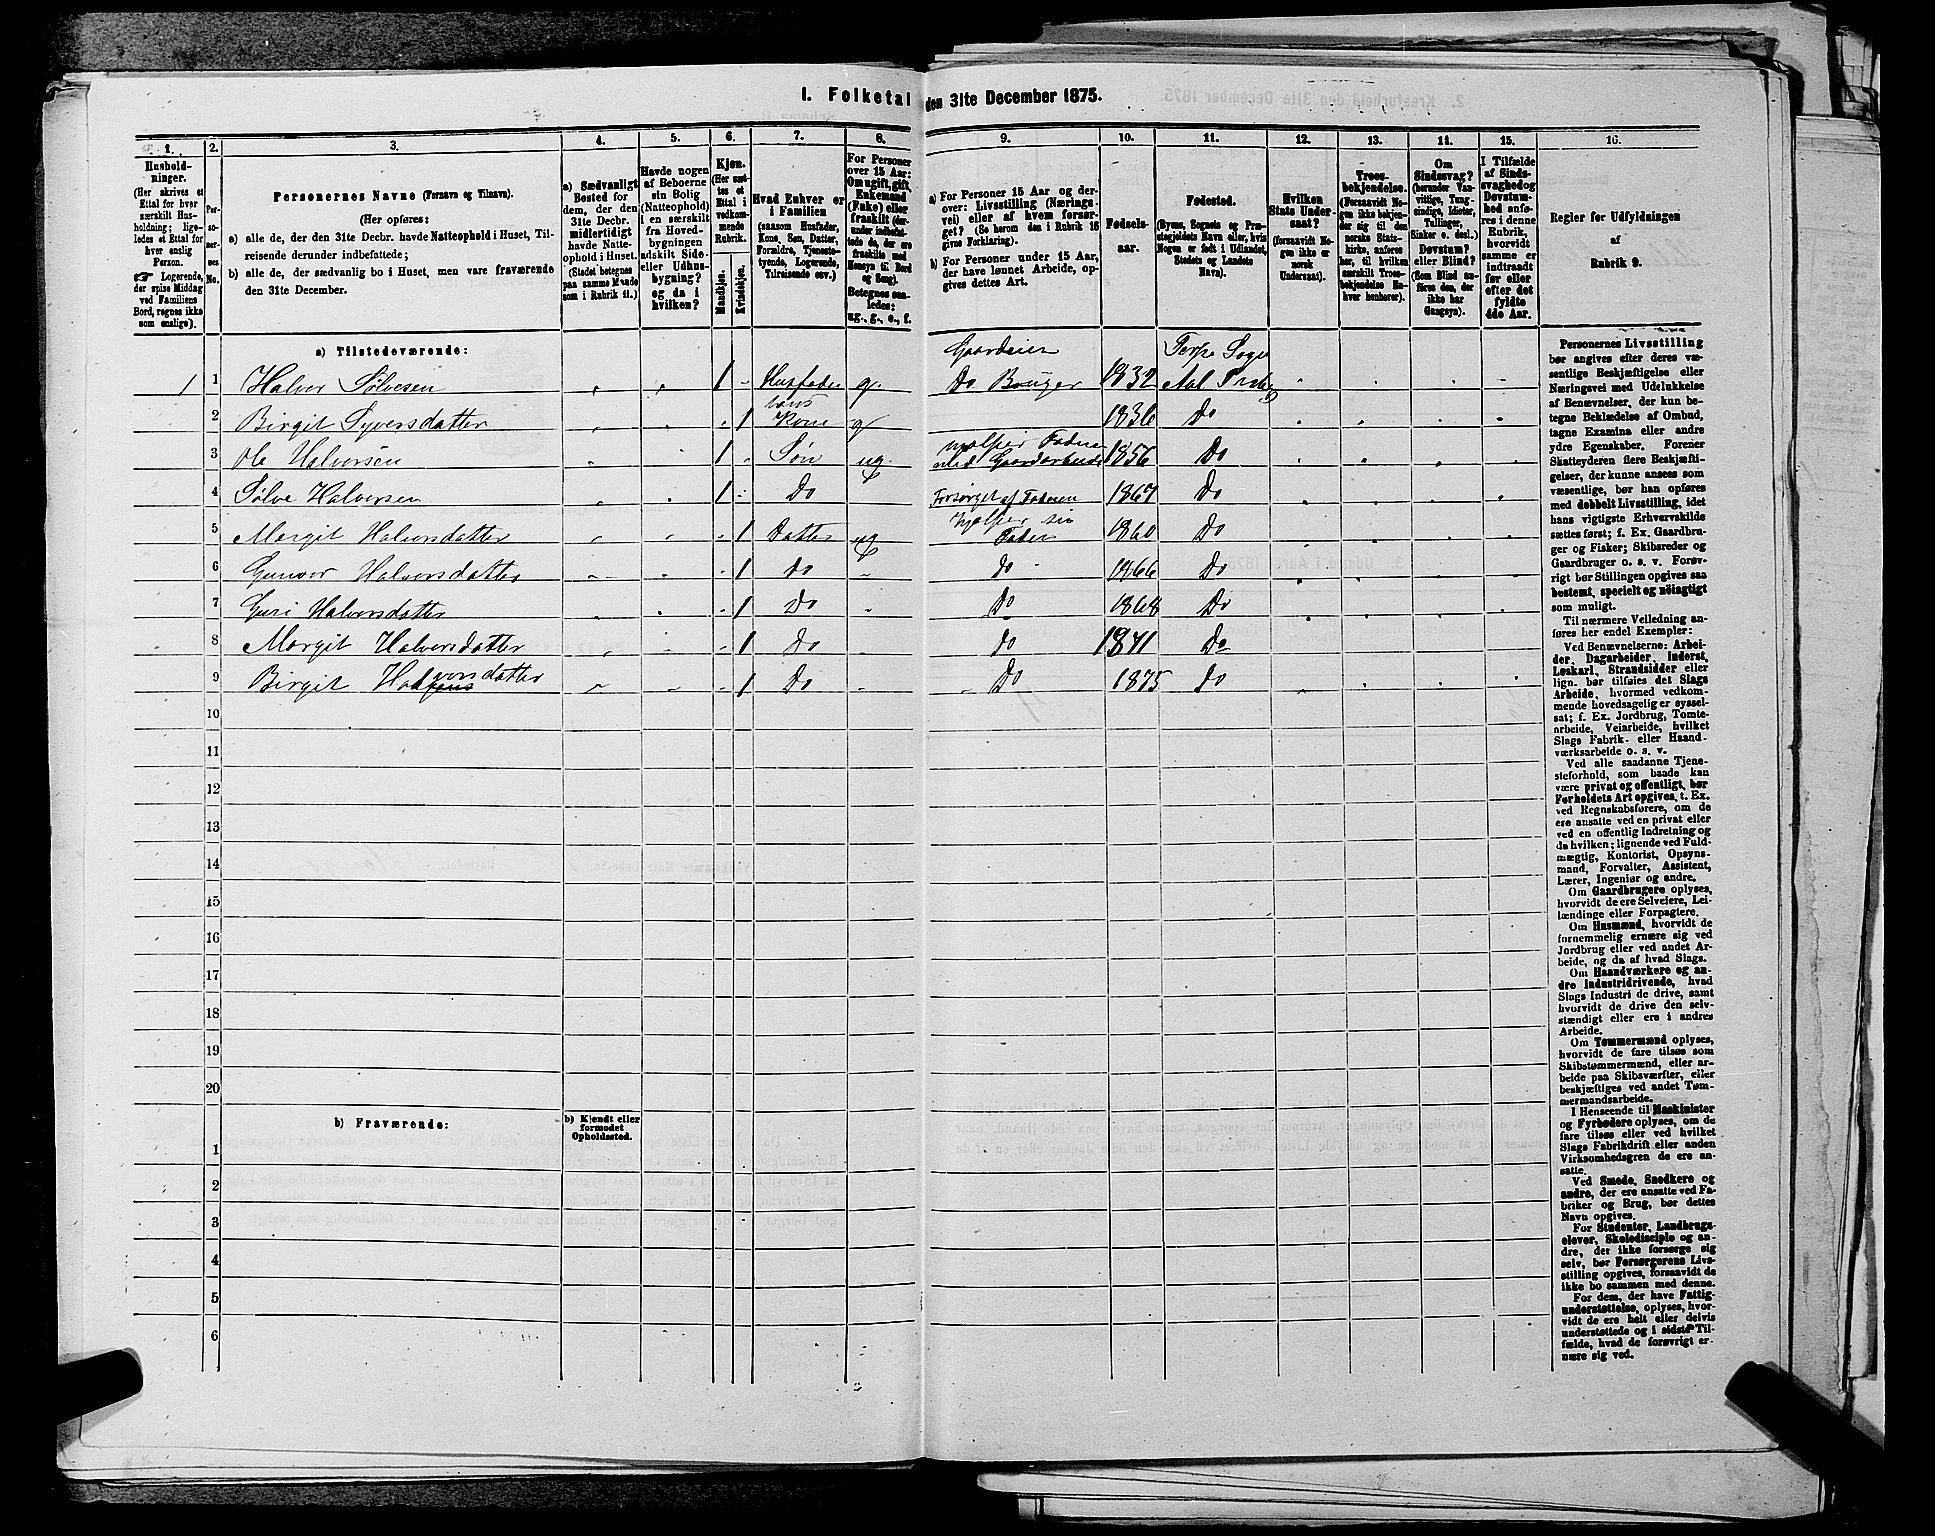 I. Folketal den 31te December 1875.
1.
Hushold-
ninger.
(Her skrives et
Ettal for hver
særskilt Hus-
holdning; lige-
ledes et Ettal for
hver enslig
Person.
☞ Logerende,
der spise Middag
ved Familiens
Bord, regnes ikke
som enslige).
2.
Per-
so-
ner-
nes
No.
3.
Personernes Navne (Fornavn og Tilnavn).
(Her opføres:
a) alle de, der den 31te Decbr. havde Natteophold i Huset, Til-
reisende derunder indbefattede;
b) alle de, der sædvanlig bo i Huset, men vare fraværende
den 31te December.
4.
a) Sædvanligt
Bosted for
dem, der den
31te Decbr.
midlertidigt
havde Natte-
ophold i Huset.
(Stedet betegnes
paa samme Maade
som i Rubrik 11.)
5.
Havde nogen
af Beboerne
sin Bolig
(Natteophold)
i en særskilt
fra Hoved-
bygningen
adskilt Side-
eller Udhus-
bygning?
og da i
hvilken?
6.
Kjøn.
(Her sæt-
tes et
Ettal i
vedkom-
mende
Rubrik.
Mandkjøn.
Kvindekjøn.
7.
Hvad Enhver er
i Familien
(saasom Husfader,
Kone, Søn, Datter,
Forældre, Tjeneste-
tyende, Logerende,
Tilreisende osv.)
8.
For Personer
over 15 Aar:
Om ugift, gift,
Enkemand
(Enke) eller
fraskilt (der-
under indbefat-
tede de, der ere
fraskilte med
Hensyn til Bord
og Seng).
Betegnes saa-
ledes:
ug., g., e., f.
9.
a) For Personer 15 Aar og der-
over: Livsstilling (Nærings-
vei) eller af hvem forsør-
get? (Se herom den i Rubrik 16
givne Forklaring).
b) For Personer under 15 Aar,
der have lønnet Arbeide, op-
gives dettes Art.
10.
Fødsels-
aar.
11.
Fødested.
(Byens, Sognets og Præ-
stegjeldets Navn eller, hvis
Nogen er født i Udlandet,
Stedets og Landets
Navn).
12.
Hvilken
Stats Under-
saat?
(forsaavidt No-
gen ikke er
norsk
Undersaat).
13.
Troes-
bekjendelse.
(Forsaavidt No-
gen ikke bekjen-
der sig til den
norske Stats-
kirke, anføres
her, til hvilken
særskilt Troes-
bekjendelse En-
hver henhører).
14.
Om
Sindssvag?
(herunder Van-
vittige, Tung-
sindige, Idioter,
Tullinger,
Sinker o. desl.)
Døvstum?
eller Blind?
(Som Blind an-
føres den, der
ikke har
Gangsyn).
15.
I Tilfælde
af Sinds-
svaghed og
Døvstum-
hed anfø-
res i denne
Rubrik,
hvorvidt
samme er
indtraadt
før eller
efter det
fyldte
4de Aar.
16.
Regler for Udfyldningen
af
Rubrik 9.
a) Tilstedeværende:
Gaardeier Torpe Sogn
1 1 Halvor Sølvesen 1 Husfader g. Do Bruger 1832 Aal
2 Birgit Syversdatter 1 hans Kone g 1836 Do
3 Ole Halvorsen 1 Søn ug. hjælper Faderen med Gaardarbeide 1856 Do
4 Sølve Halvorsen 1 Do Forsørget af Faderen 1867 Do
5 Margit Halvorsdatter 1 Datter ug hjælper sin Fader 1860 Do
6 Gunvor Halvorsdatter 1 Do Do 1866 Do
7 Guri Halvorsdatter 1 Do Do 1868 Do
8 Margit Halvorsdatter 1 Do Do 1871 Do
9 Birgit Halvorsdatter 1 Do Do 1875 Do
10
11
12
13
14
15
16
17
18
19
20
b) Fraværende:
b) Kjendt eller
formodet
Opholdssted.
1
2
3
4
5
6
Personernes Livsstilling
bør angives efter deres væ-
sentlige Beskjæftigelse eller
Næringsvei med Udelukkelse
af Benævnelser, der kun be-
tegne Beklædelse af Ombud,
tagne Examina eller andre
ydre Egenskaber. Forener
Skatteyderen flere Beskjæfti-
gelser, der kunne ansees som
væsentlige, bør han opføres
med dobbelt Livsstilling, idet
hans vigtigste Erhvervskilde
sættes først; f. Ex. Gaardbru-
ger og Fisker; Skibsreder og
Gaardbruger o. s. v. Forøv-
rigt bør Stillingen opgives saa
bestemt, specielt og nøiagtigt
som muligt.
Til nærmere Veiledning an-
føres her endel Exempler:
Ved Benævnelserne: Arbei-
der, Dagarbeider, Inderst,
Løskarl, Strandsidder eller
lign. bør tilføies det Slags
Arbeide, hvormed vedkom-
mende hovedsagelig er syssel-
sat; f. Ex. Jordbrug, Tomte-
arbeide, Veiarbeide, hvilket
Slags Fabrik- eller Haand-
værksarbeide o. s. v.
Ved alle saadanne Tjene-
steforhold, som baade kan
være privat og offentligt, bør
Forholdets Art opgives, f. Ex.
ved Regnskabsførere, om de
ere ansatte ved en privat eller
ved en offentlig Indretning og
da hvilken; lignende ved Fuld-
mægtig, Kontorist, Opsyns-
mand, Forvalter, Assistent,
Lærer, Ingeniør og andre.
Om Gaardbrugere oplyses,
hvorvidt de ere Selveiere, Lei-
lændinge eller Forpagtere.
Om Husmænd, hvorvidt de
fornemmelig ernære sig ved
Jordbrug eller ved andet Ar-
beide, og da af hvad Slags.
Om Haandværkere og an-
dre Industridrivende, hvad
Slags Industri de drive, samt
hvorvidt de drive den selv-
stændigt eller ere i andres
Arbeide.
Om Tømmermænd oplyses,
hvorvidt de fare tilsøs som
Skibstømmermænd, eller ar-
beide paa Skibsværfter, eller
beskjæftiges ved andet Tøm-
mermandsarbeide.
I Henseende til Maskinister
og Fyrbødere oplyses, om de
fare tilsøs eller ved hvilket
Slags Fabrikdrift eller anden
Virksomhedsgren de ere an-
satte.
Ved Smede, Snedkere og
andre, der ere ansatte ved Fa-
briker og Brug, bør dettes
Navn opgives.
For Studenter, Landbrugs-
elever, Skoledisciple og an-
dre, der ikke forsørge sig
selv, bør Forsørgerens Livs-
stilling opgives, forsaavidt de
ikke bo sammen med denne.
For dem, der have Fattig-
understøttelse, oplyses, hvor-
vidt de ere helt eller delvis
understøttede og i sidste Til-
fælde, hvad de forøvrigt er-
nære sig ved.